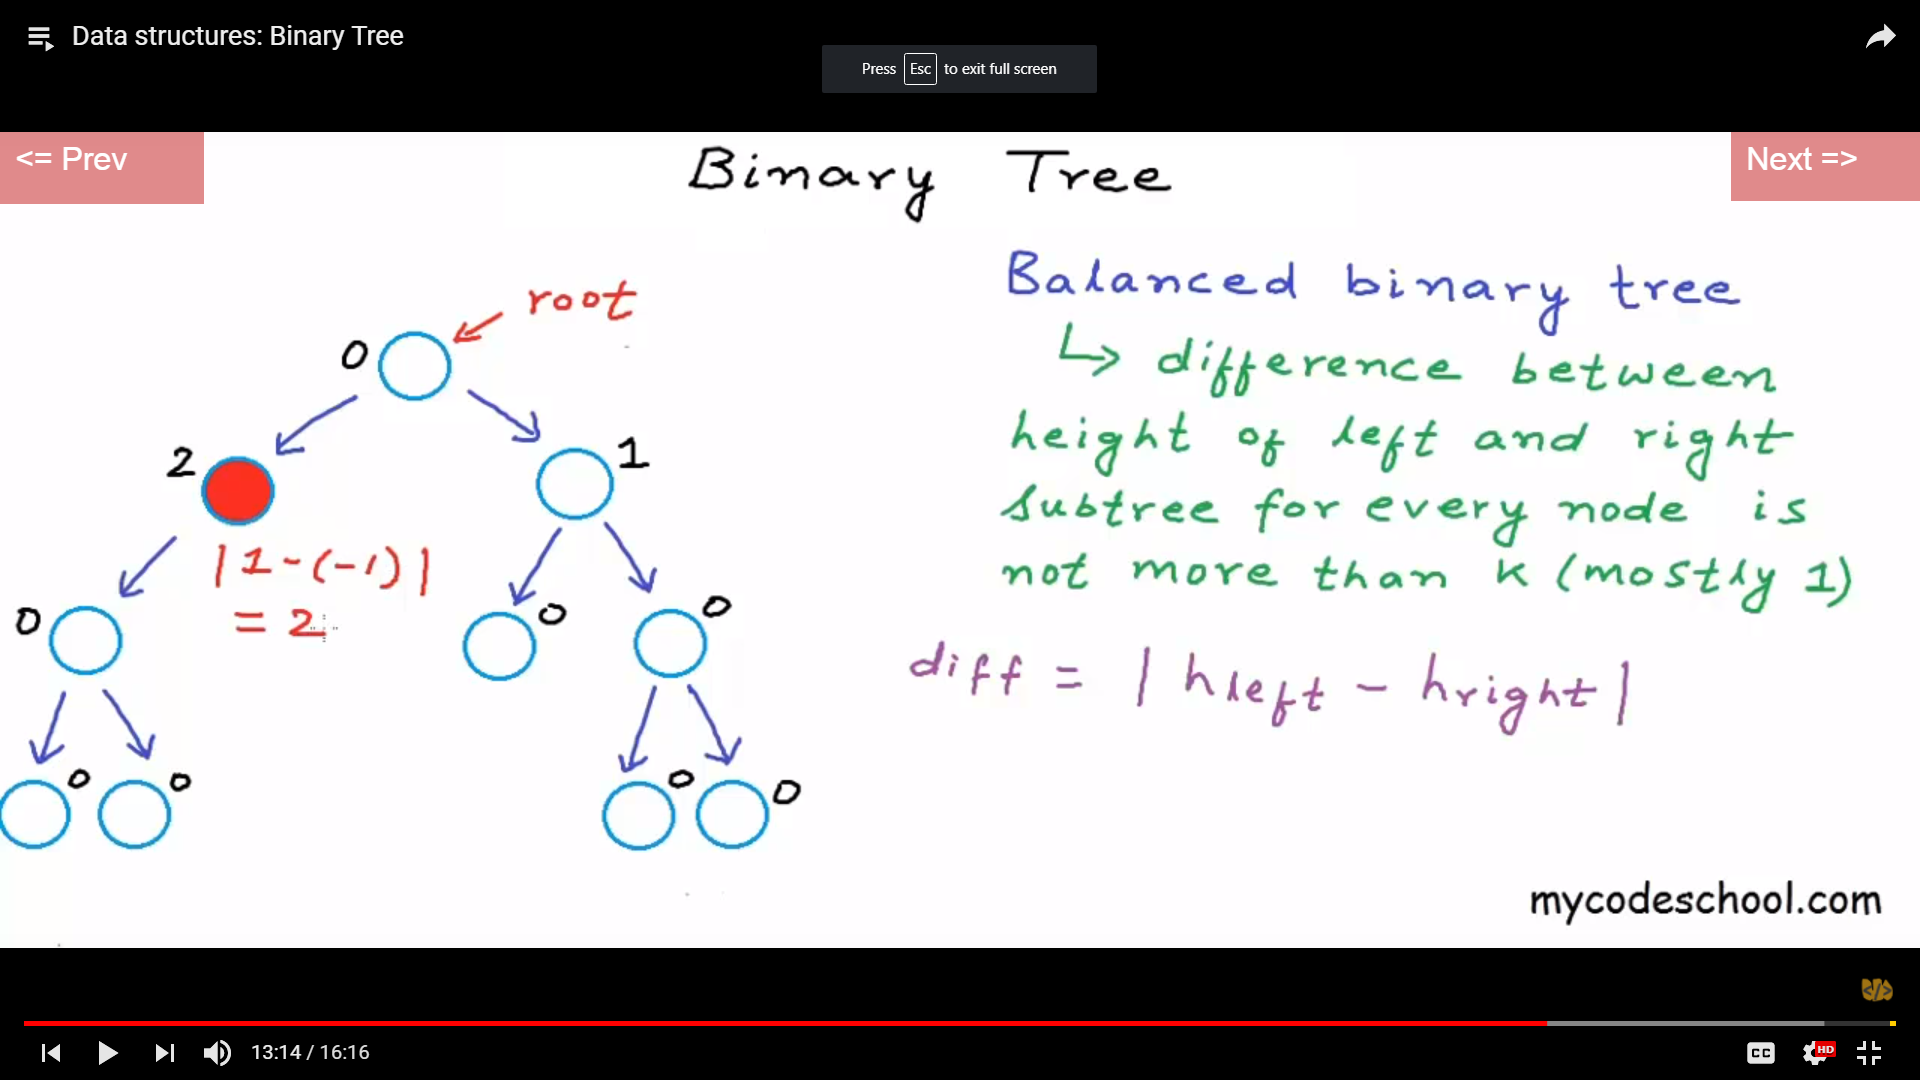 Data structures: Binary Tree
Press Esc to exit full screen
<= Prev
Next =>
Binary Tree
root
0
2
1
|1-(-1)|
= 2
0
0
0
0
0
0
0
Balanced binary tree
↳ difference between
height of left and right
subtree for every node is
not more than k (mostly 1)
diff = | hleft - hright |
mycodeschool.com
</>
13:14 / 16:16
CC
HD